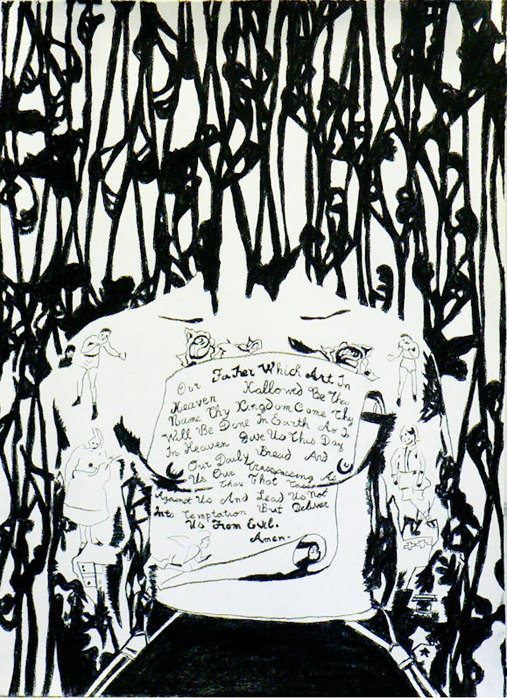 Our Father Which Art In
Heaven Hallowed Be Thy
Name Thy Kingdom Come Thy
Will Be Done In Earth As I
In Heaven Give Us This Day
Our Daily Bread And
Us Our Trespassing As
Thou That
Against Us And Lead Us Not
Into Temptation But Deliver
Us From Evil.
Amen.